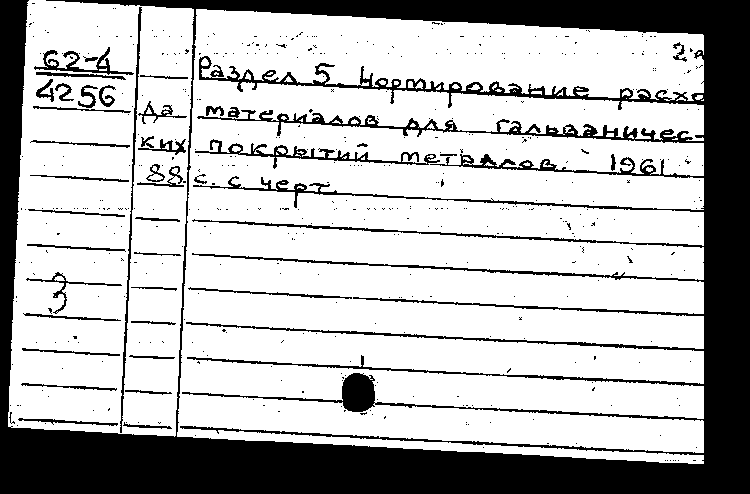 2
62-4
4256
Раздел 5. Нормирование расхо
да материалов для гальваничес-
ких покрытий металлов. 1961.
88 с. с черт.
3